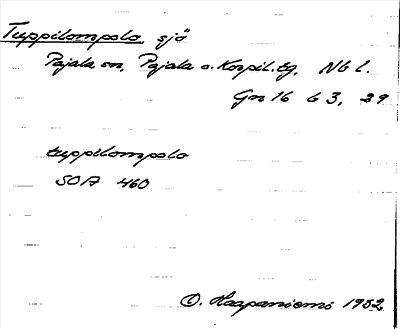 Tuppilompolo sjö
Pajala sn, Pajala o. Korpil. tg, Nb l.
Gn 16 b 3, 29
tuppilompolo
SOA 460
O. Haapaniemi 1952